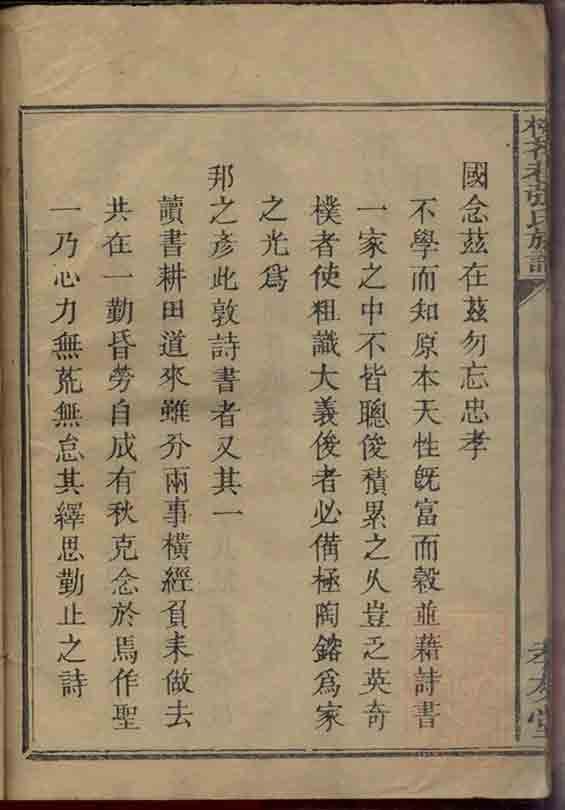 國念茲在茲勿忘忠孝
不學而知原本天性既富而穀並藉詩書
一家之中不皆聰俊積累之久豈乏英奇
樸者使粗識大義俊者必備極陶鎔爲家
之光爲
邦之彥此敦詩書者又其一
讀書耕田道來雖分兩事橫經負耒做去
共在一勤昏勞自成有秋克念於焉作聖
一乃心力無荒無怠其繹思勤止之詩
張氏族譜
孝友堂